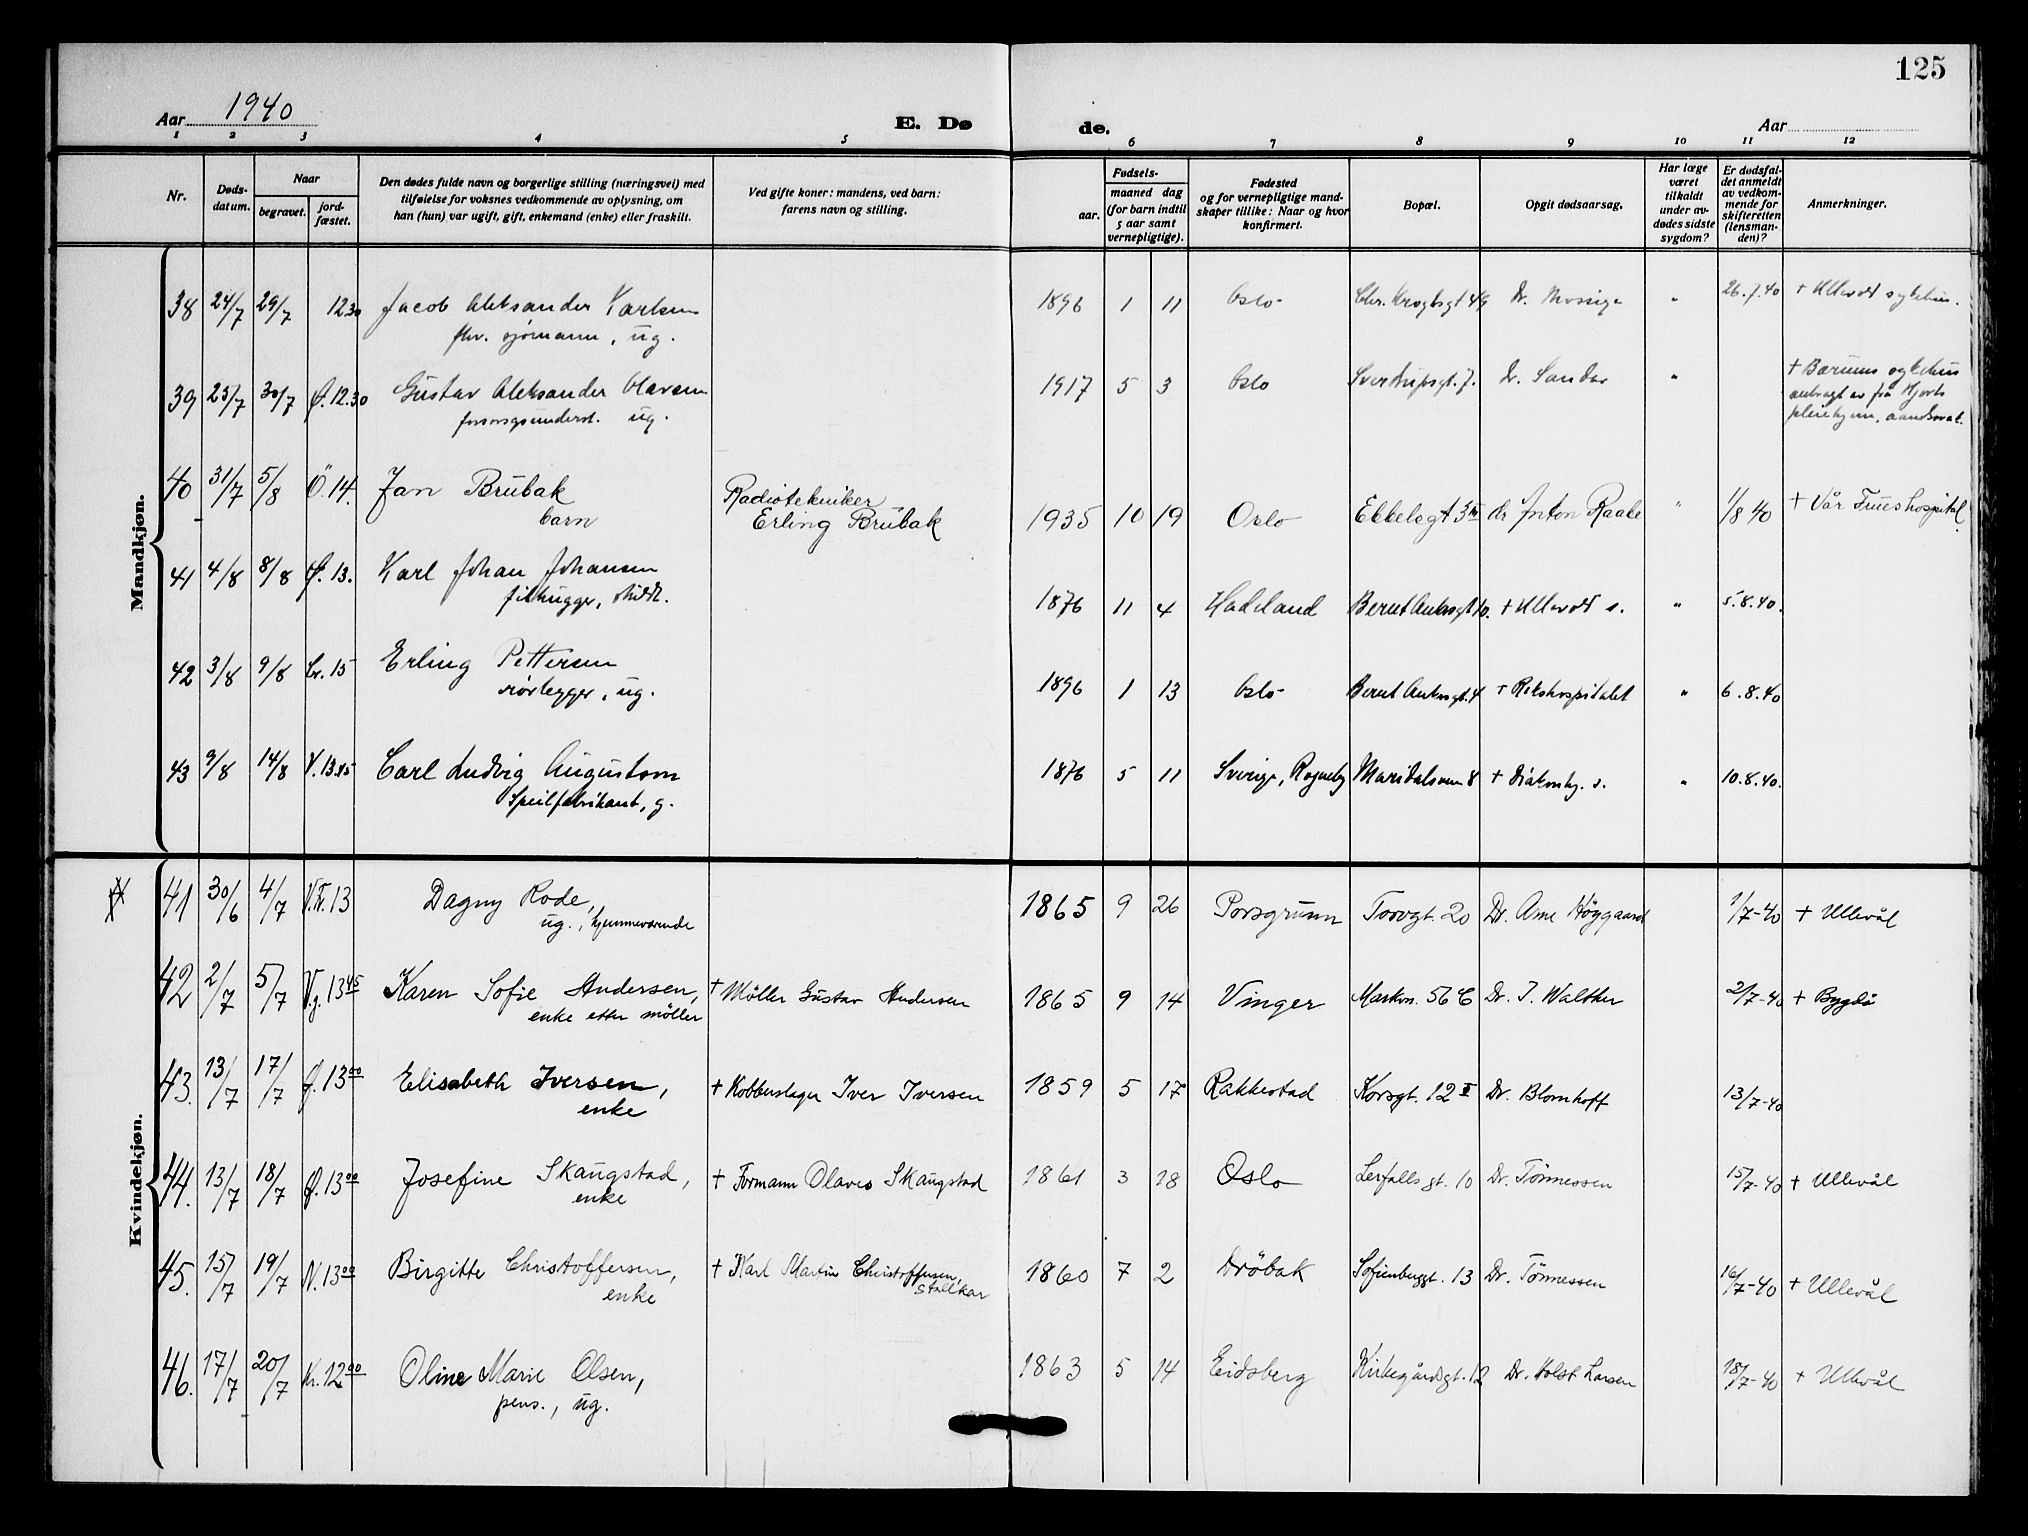 125
Aar 1940
E. Dø
de.
Aar
1 2 3 4 5 6 7 8 9 10 11 12
Nr.
Døds-
datum.
Naar
begravet.
jord-
fæstet.
Den dødes fulde navn og borgerlige stilling (næringsvei) med
tilføielse for voksnes vedkommende av oplysning, om
han (hun) var ugift, gift, enkemand (enke) eller fraskilt.
Ved gifte koner: mandens, ved barn:
farens navn og stilling.
Fødsels-
aar.
maaned dag
(for barn indtil
5 aar samt
vernepligtige).
Fødested
og for vernepligtige mand-
skaper tillike: Naar og hvor
konfirmert.
Bopæl.
Opgit dødsaarsag.
Har læge
været
tilkaldt
under av-
dødes sidste
sygdom?
Er dødsfal-
det anmeldt
av vedkom-
mende for
skifteretten
(lensman-
den)?
Anmerkninger.
Mandkjøn.
38 24/7 29/7 12.30 Jacob Aleksander Karlsen 1896 1 11 Oslo Chr. Kroghsgt 49 Dr. " 26.7.40 + Ullevål sykehus.
fhv. sjømann, ug.
39 23/7 30/7 Ø. 12.30 Gustav Aleksander Olavsen 1917 5 3 Oslo Sverdrupsgt. 7. Dr. Sandar " + Bærums sykehus
forsorgsunderst. ug.
fra Hjorts
pleiehjem,
40 31/7 5/8 Ö. 14. Jan Brubak Radiotekniker
barn Erling Brubak 1935 10 19 Oslo Ebbelsgt 3 III dr Anton Raabe " 1/8 40 + Vår Frues hospital.
41 4/8 8/8 Ø. 13. Karl Johan Johansen
filhugger, skildt. 1876 11 4 Hadeland Bernt Ankersgt 10. + Ullevål s. " 5.8.40.
42 3/8 9/8 Cr. 15 Erling Pettersen
rørlegger, ug. 1896 1 13 Oslo Bernt Ankersgt. 4 + Rikshospitalet " 6.8.40
43 9/8 14/8 V. 13.45 Carl Ludvig Augustson 1876 5 11 Sverige, Maridalsveien 8 + Diakonhj. s. " 10.8.40.
Speilfabrikant, g.
Kvindekjøn.
41 30/6 4/7 V.Kr. 13 Dagny Rode, 1865 9 26 Porsgrunn Torvgt. 20 Dr. Arne Höygaard 1/7-40 + Ullevål
ug., hjemmeværende
42 2/7 5/7 V.g. 13 45 Karen Sofie Andersen, + Möller Gustav Andersen 1865 9 14 Vinger Markvn. 56 C Dr. J. Walther 2/7-40 + Bygdö
enke etter möller
43. 13/7 17/7 Ø. 13 00 Elisabeth Iversen, + Kobberslager Iver Iversen 1859 5 17 Rakkestad Korsgt. 12 II Dr. Blomhoff 13/7-40
enke
44. 13/7 18/7 Ø. 13 00 Josefine Skaugstad, + Formann Olaves Skaugstad 1861 3 18 Oslo Lerfallsgt. 10 Dr. Tönnessen 15/7-40 + Ullevål
enke
45. 15/7 19/7 N. 13 00 Birgitte Christoffersen, + Karl Martin Christoffersen, 1860 7 2 Dröbak Sofienberggt. 13 Dr. Tönnessen 16/7-40 + Ullevål
enke Stallkar
46. 17/7 20/7 Kr. 12 00 Oline Marie Olsen, 1863 5 14 Eidsberg Kirkegårdsgt. 12 Dr. Holst Larsen 18/7-40 + Ullevål
pens., ug.